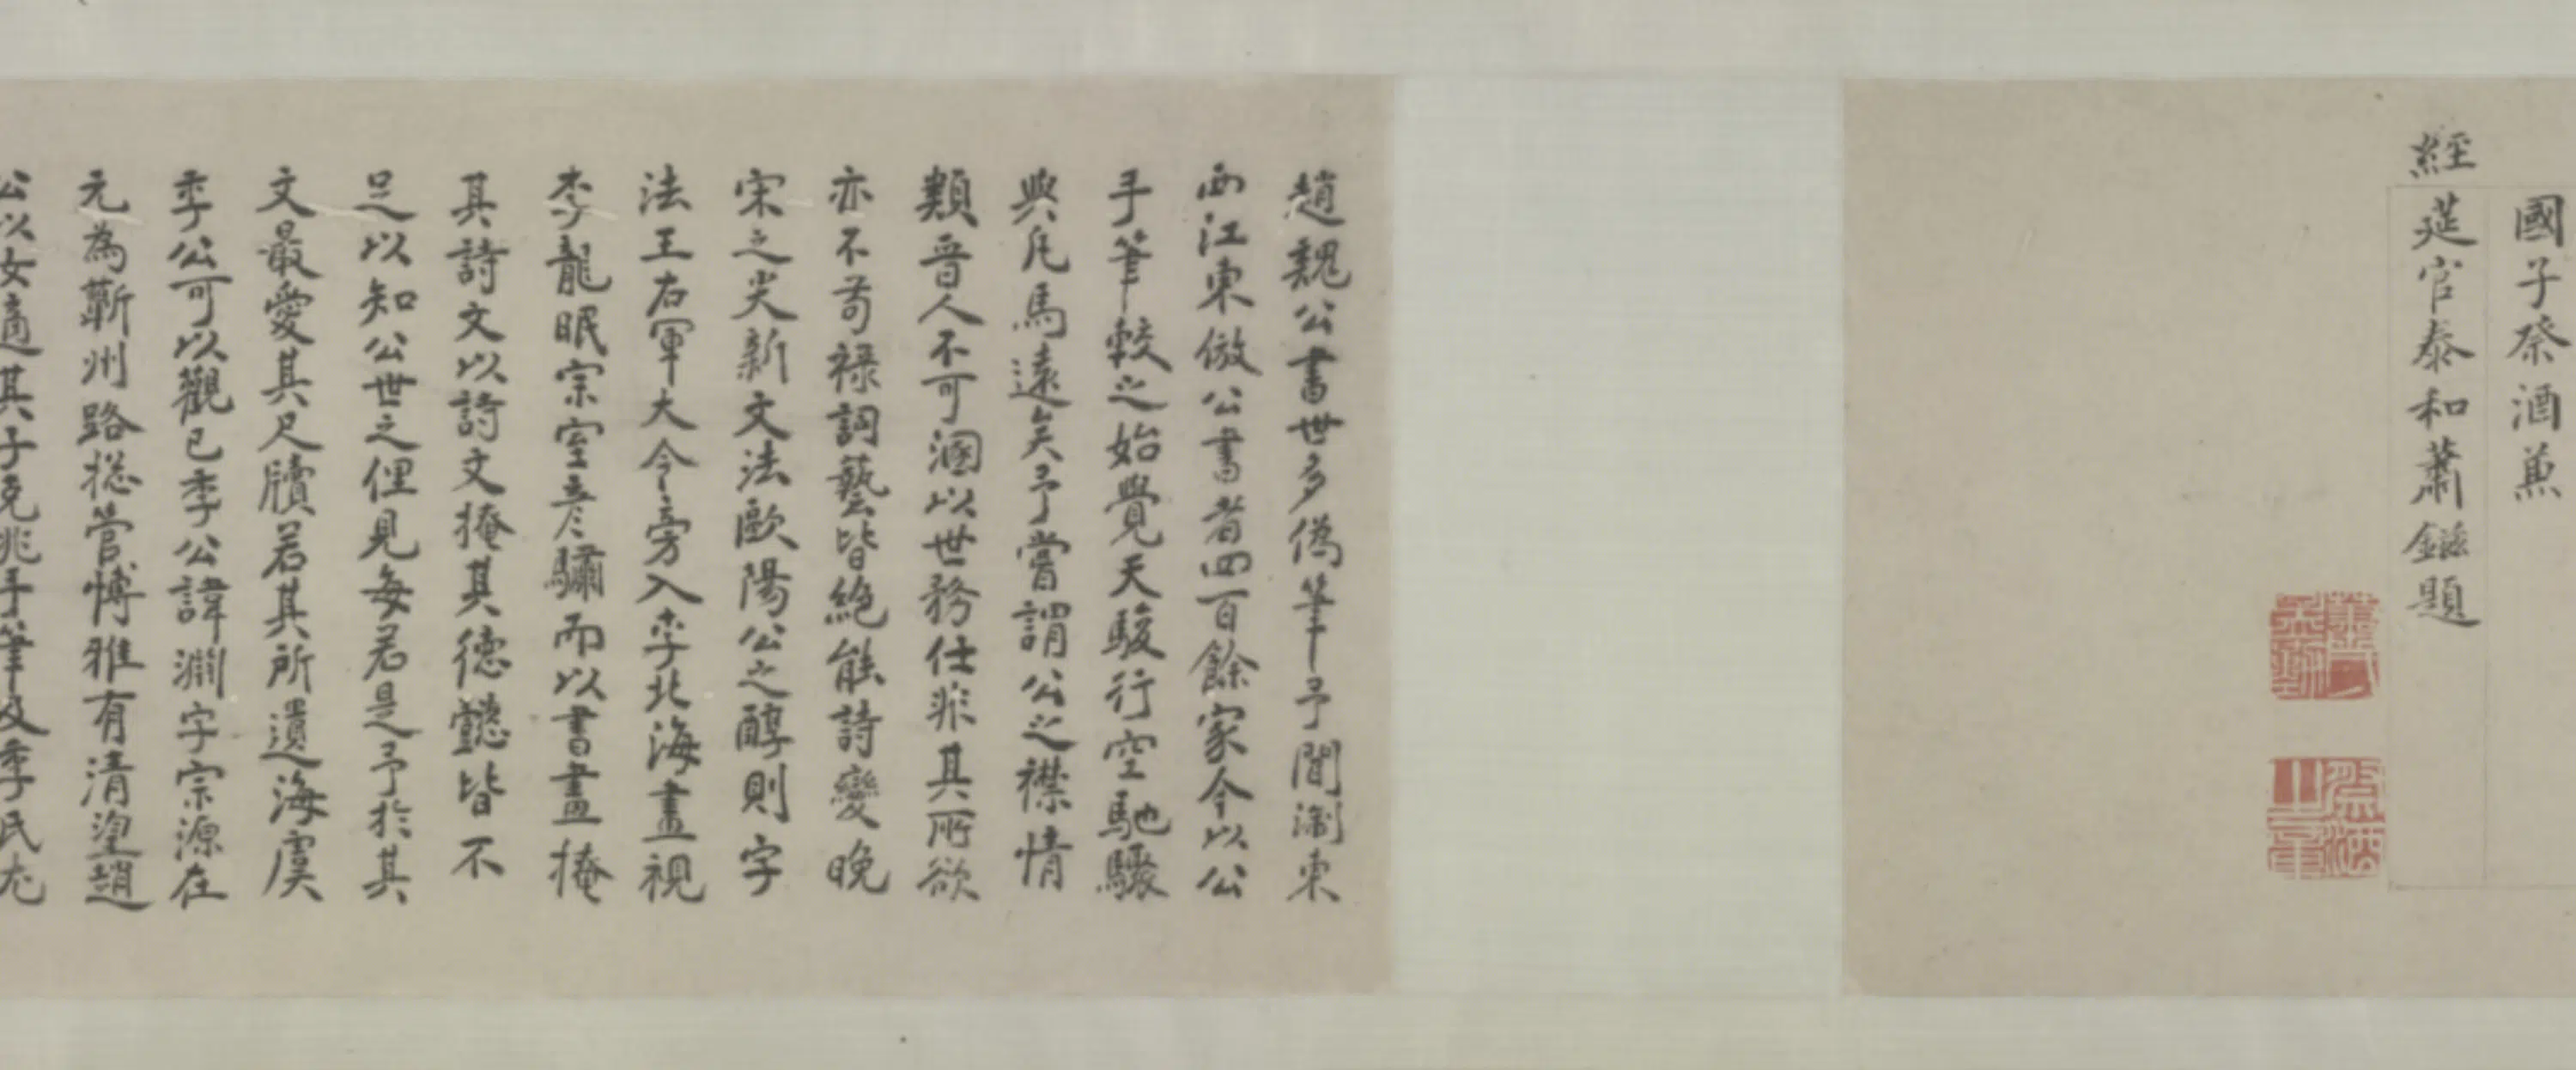 國子祭酒兼
經筵官泰和蕭鎡題
蕭氏孟勤
祭酒之章
趙魏公書世多偽筆予聞淛東
西江東倣公書者四百餘家今以公
手筆較之始覺天駿行空馳驟
與凡馬遠矣予嘗謂公之襟情
類晉人不可溷以世務仕非其所欲
亦不苟祿詞藝皆絕能詩變晚
宋之尖新文法歐陽公之醇則字
法王右軍大令旁入李北海畫視
李龍眠宗室彥驌而以書畫掩
其詩文以詩文掩其德懿皆不
足以知公世之俚見每若是予於其
文最愛其尺牘若其所遺海虞
季公可以觀已季公諱淵字宗源在
元為蘄州路捴管博雅有清望趙
公以女適其子克兆手筆及季氏尤